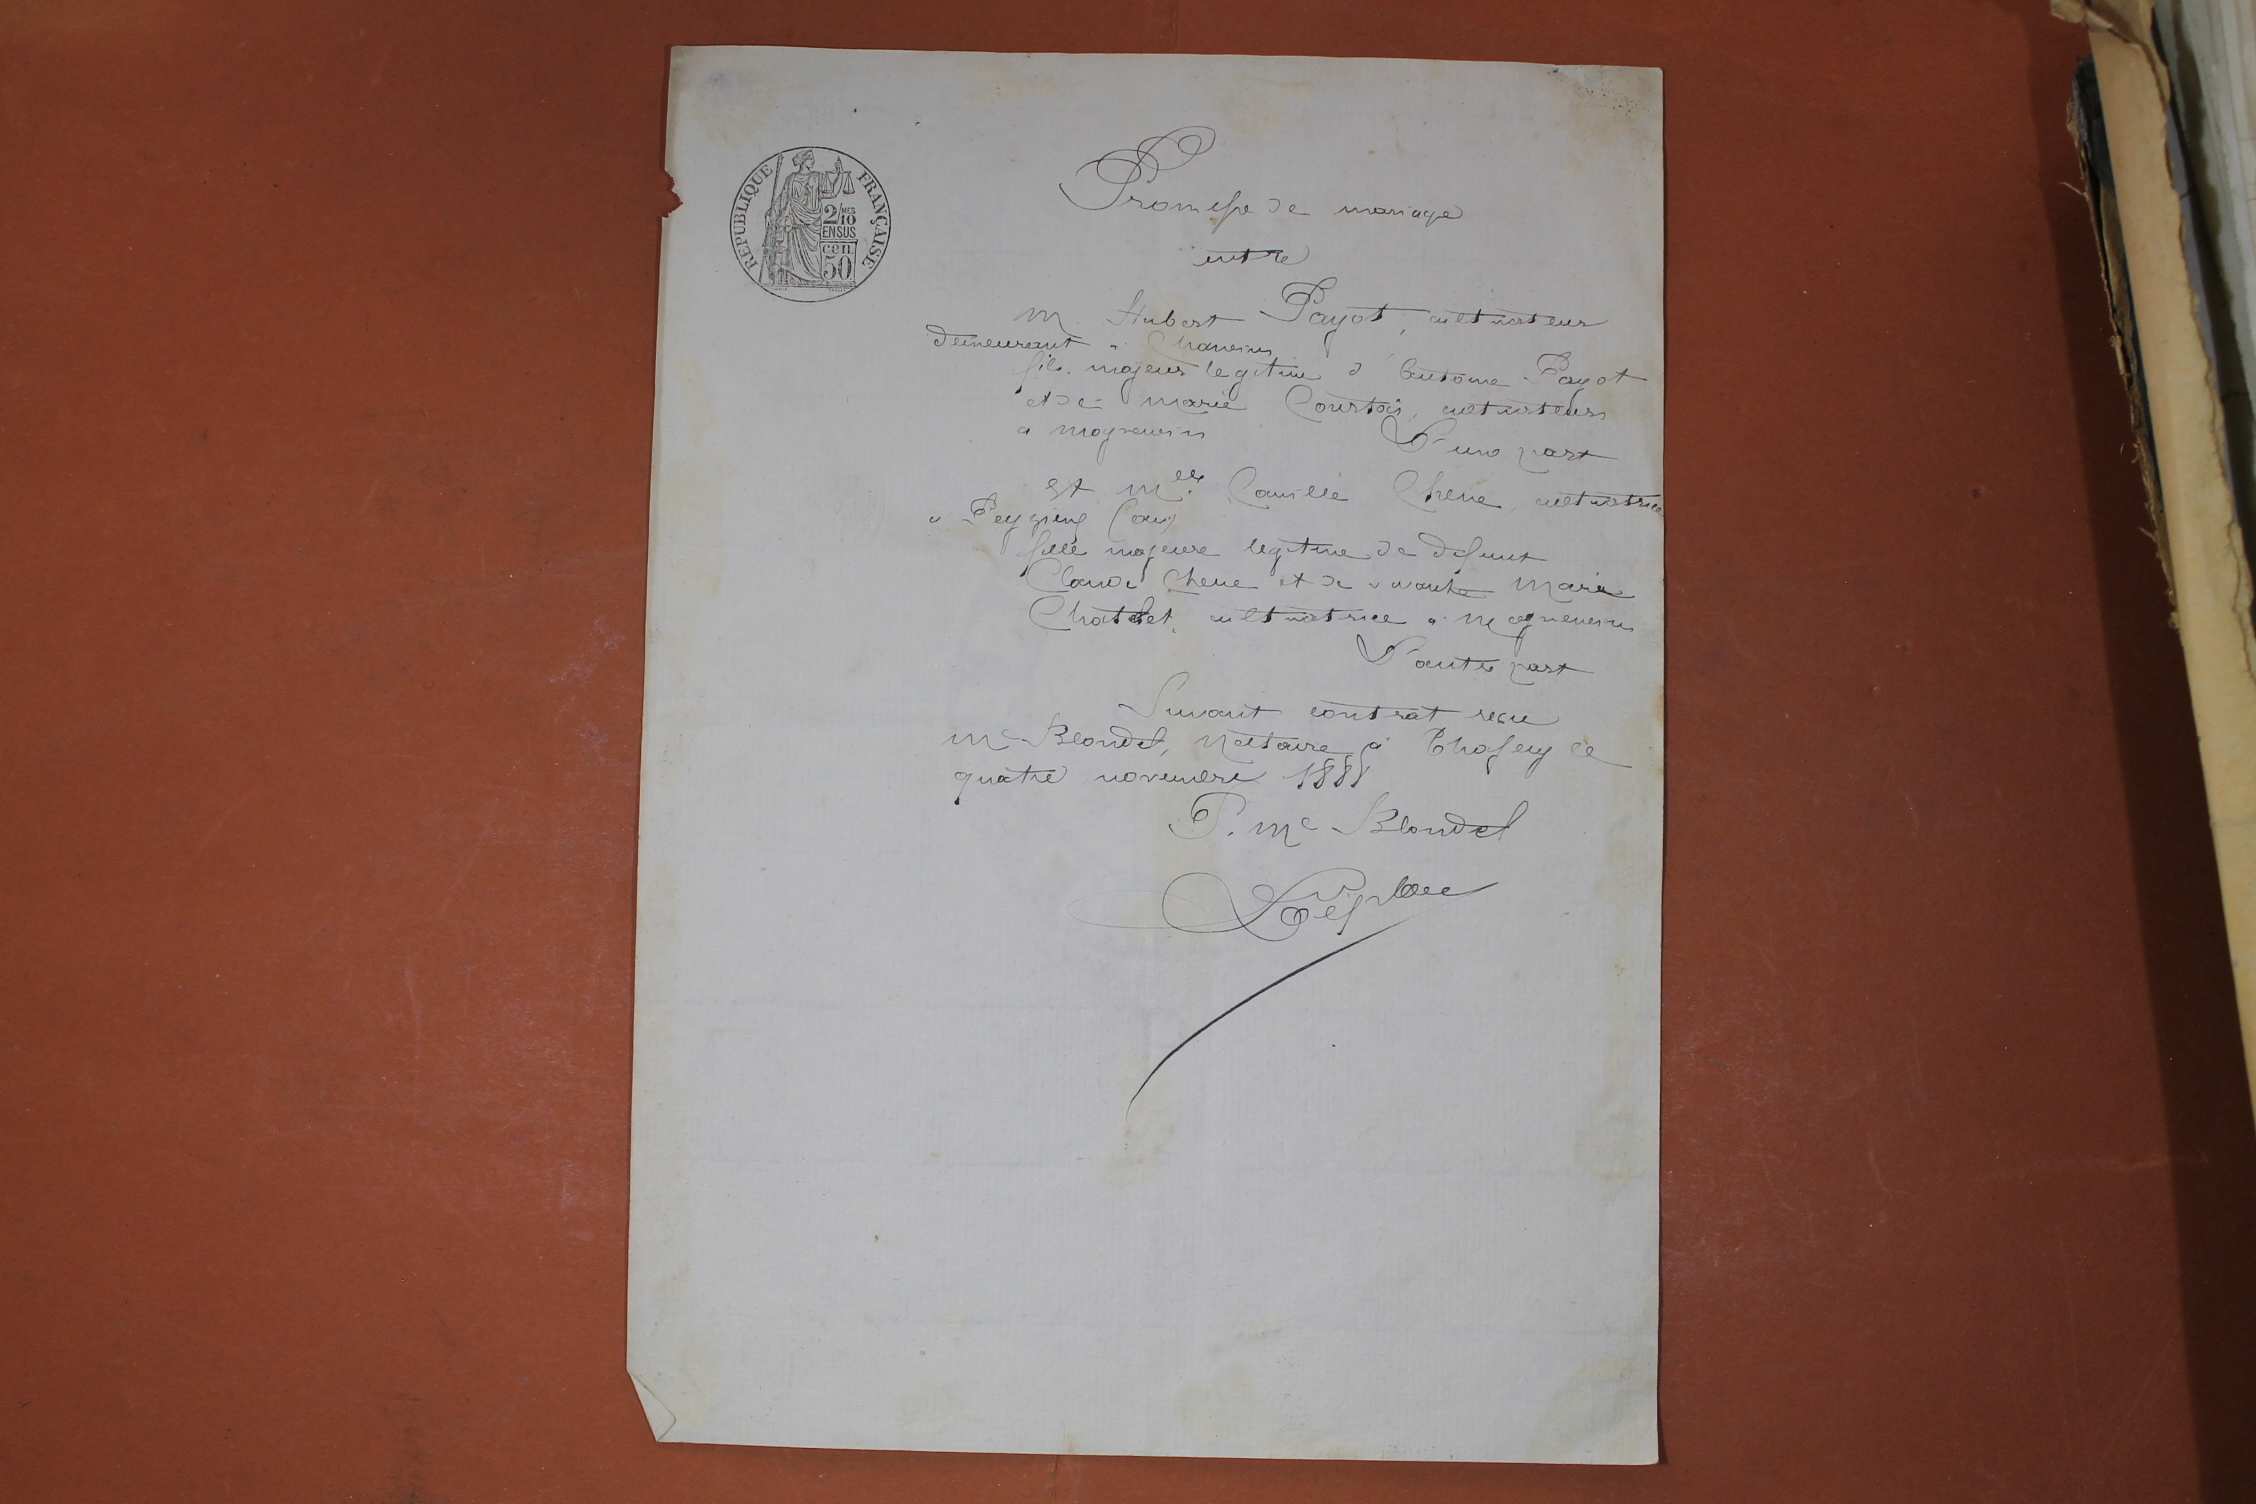 RÉPUBLIQUE FRANÇAISE
2/10 MES
EN SUS
cen.
50
Promesse de mariage
entre
M. Hubert Payot, cultivateur
demeurant à Chaneins
fils majeur légitime d'Antoine Payot
et de Marie Courtois, cultivateurs
à Mogneneins D'une part
Et Mlle Camille Chene, cultivatrice
à Peyzieux (ain)
fille majeure légitime de défunt
Claude Chene et de vivante Marie
Chatelet, cultivatrice à Mogneneins
D'autre part
Suivant contrat reçu
Me Blondel, Notaire à Thoissey le
quatre novembre 1881
P. Me Blondel